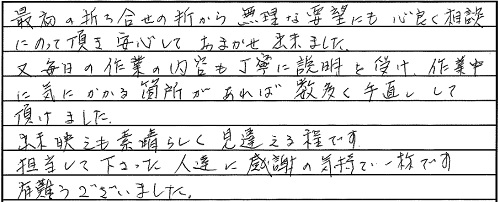 最初の折り合せの折から無理な要望にも心良く相談
にのって頂き安心しておまかせ出来ました。
又毎日の作業の内容も丁寧に説明を受け、作業中
に気にかかる箇所があれば数多く手直しして
頂けました。
出来映えも素晴らしく見違える程です
担当して下さった人達に感謝の気持で一杯です
有難うございました。